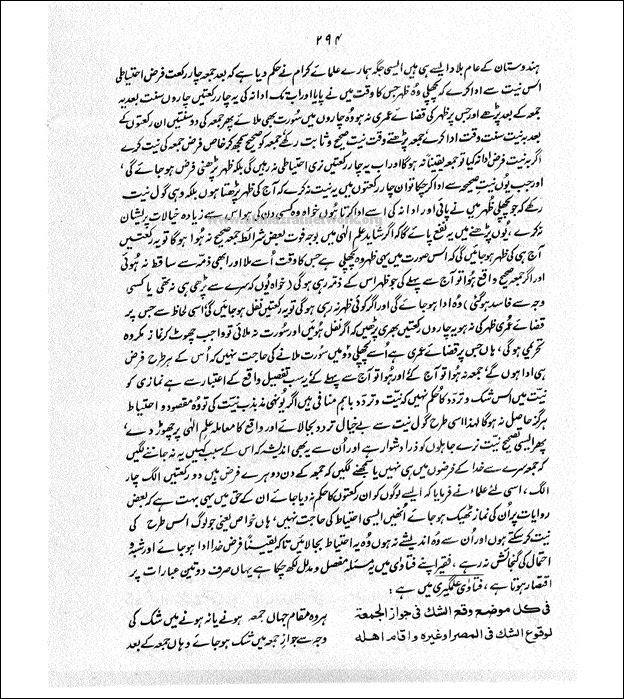 ۲۹۴
ہندوستان کے عام بلاد ایسے ہی ہیں ایسی جگہ ہمارے علمائے کرام نے حکم دیا ہے کہ بعد جمعہ چار رکعت فرض احتیاطی
اس نیت سے ادا کرے کہ پچھلی وہ ظہر جس کا وقت میں نے پایا اور اب تک ادا نہ کی یہ چار رکعتیں چاروں سنت بعدیہ
جمعہ کے بعد پڑھے اور جس پر ظہر کی قضائے عمری نہ ہو وہ چاروں میں سورت بھی ملائے پھر جمعہ کی دو سنتیں ان رکعتوں کے
بعد بہ نیت سنت وقت ادا کرے جمعہ پڑھتے وقت نیت صحیح و ثابت رکھے جمعہ کو صحیح سمجھ کر خاص فرض جمعہ کی نیت کرے
اگر بہ نیت فرض ادا نہ کیا تو جمعہ یقیناً نہ ہوگا اور اب یہ چار رکعتیں نری احتیاطی نہ رہیں گی بلکہ ظہر پڑھنی فرض ہو جائے گی ،
اور جب یوں نیت صحیحہ سے ادا کرچکا تو ان چار رکعتوں میں یہ نیت نہ کرے کہ آج کی ظہر پڑھتا ہوں بلکہ وہی گول نیت
رکھے کہ جو پچھلی ظہر میں نے پائی اور ادا نہ کی اسے ادا کرتا ہوں خواہ وہ کسی دن کی ہو اس سے زیادہ خیالات پریشان
نہ کرے ، یوں پڑھنے میں یہ نفع پائے گا کہ اگر شاید علم الٰہی میں بوجہ فوت بعض شرائط جمعہ صحیح نہ ہوا ہوگا تو یہ رکعتیں
آج ہی کی ظہر ہو جائیں گی کہ اس صورت میں یہی ظہر وہ پچھلی ہے جس کا وقت اُسے ملا اور ابھی ذمہ سے ساقط نہ ہوئی
اور اگر جمعہ صحیح واقع ہُوا تو آج سے پہلے کی جو ظہر اس کے ذمہ رہی ہوگی ( خواہ یوں کہ سرے سے پڑھی ہی نہ تھی یا کسی
وجہ سے فاسد ہوگئی ) وہ ادا ہو جائے گی اور اگر کوئی ظہر نہ رہی ہوگی تو یہ رکعتیں نفل ہو جائیں گی اسی لحاظ سے جس پر
قضائے عمری ظہر کی نہ ہو یہ چاروں رکعتیں بھری پڑھیں کہ اگر نفل ہوئیں اور سُورت نہ ملائی تو واجب چھوٹ کر نماز مکروہ
تحریمی ہوگی ، ہاں جس پر قضائے عمری ہے اُسے پچھلی دو میں سورت ملانے کی حاجت نہیں کہ اُس کے ہر طرح فرض
ہی ادا ہوں گے جمعہ نہ ہُوا تو آج کے اور ہُوا تو آج سے پہلے کے ، یہ سب تفصیل واقع کے اعتبار سے ہے نمازی کو
نیت میں اس شک و تردّد کا حکم نہیں کہ نیت و تردّد باہم منافی ہیں اگر یونہی مذبذب نیت کی تو وہ مقصود و احتیاط
ہرگز حاصل نہ ہوگا لہٰذا اسی طرح گول نیت سے بے خیال تردد بجا لائے اور واقع کا معاملہ علم الٰہی پر چھوڑ دے ،
پھر ایسی تصحیح نیت نرے جاہلوں کو ذرا دشوار ہے اور اُن سے یہ بھی اندیشہ کہ اس کے سبب کہیں یہ نہ جاننے لگیں
کہ جمعہ سرے سے خدا کے فرضوں میں ہی نہیں یا سمجھنے لگیں کہ جمعہ کے دن دوہرے فرض ہیں دو رکعتیں الگ چار
الگ ، اسی لئے علماء نے فرمایا کہ ایسے لوگوں کو ان رکعتوں کا حکم نہ دیا جائے ان کے حق میں یہی بہت ہے کہ بعض
روایات پر اُن کی نماز ٹھیک ہو جائے اُنھیں ایسی احتیاط کی حاجت نہیں ، ہاں خواص یعنی جو لوگ اس طرح کی
نیت کرسکتے ہوں اور اُن سے وہ اندیشے نہ ہوں وہ یہ احتیاط بجا لائیں تاکہ یقیناً فرضِ خدا ادا ہو جائے اور شبہہ و
احتمال کی گنجائش نہ رہے ، فقیر اپنے فتاوٰی میں یہ مسئلہ مفصل و مدلل لکھ چکا ہے یہاں صرف دو تین عبارات پر
اقتصار ہوتا ہے ، فتاوٰی علمگیری میں ہے :
فی کل موضع وقع الشك فی جواز الجمعة ہر وہ مقام جہاں جمعہ ہونے یا نہ ہونے میں شک کی
لوقوع الشك فی المصر او غیرہ واقام اھلہ وجہ سے جوازِ جمعہ میں شک ہو جائے وہاں جمعہ کے بعد